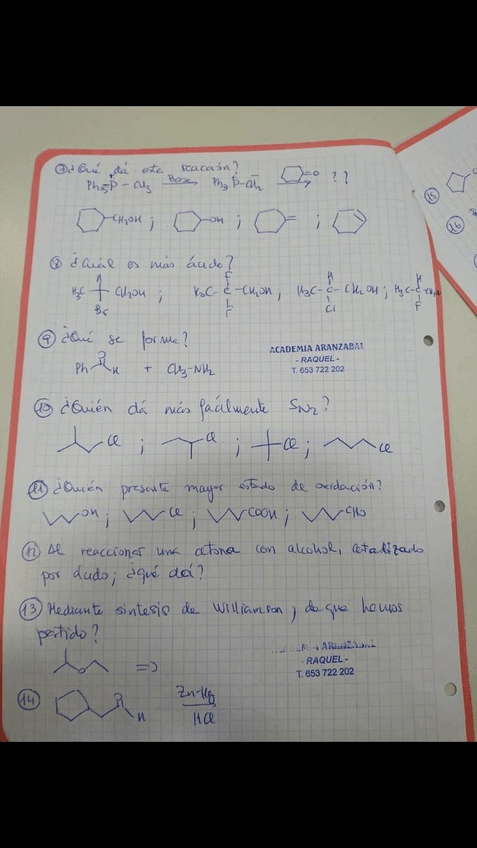 7 ¿Qué dá esta reacción?
Ph₃P⁺-CH₃ Base Ph₃P⁺-CH₂⁻ =O ??
CH₂OH ; OH ; ;
8 ¿Cuál es más ácido?
H₃C CH₂OH ; H₃C-C-CH₂OH ; H₃C-C-CH₂OH ; H₃C-C
Br F F H Cl H F
9 ¿Qué se forma?
Ph H + CH₃-NH₂
ACADEMIA ARANZABAL
- RAQUEL -
T. 653 722 202
10 ¿Quién dá más fácilmente SN2?
Cl ; Cl ; Cl ; Cl
11 ¿Quién presenta mayor estado de oxidación?
OH ; Cl ; COOH ; CHO
12 Al reaccionar una cetona con alcohol, catalizado
por ácido; ¿qué dá?
13 Mediante síntesis de Williamson, de que hemos
partido?
O =>
- RAQUEL -
T. 653 722 202
14 H Zn-Hg
HCl
15
16